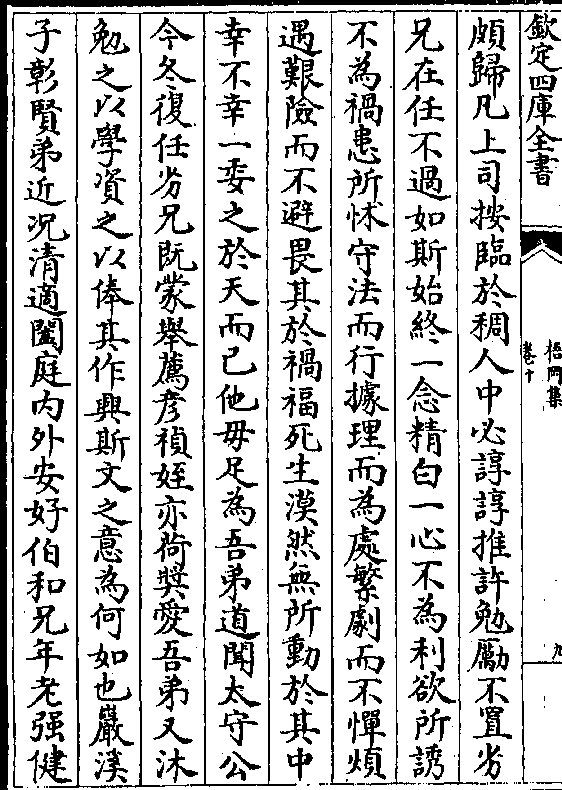 欽定四庫全書
梧岡集
卷十
九
頗歸凡上司按臨於稠人中必諄諄推許勉勵不置劣
兄在任不過如斯始終一念精白一心不為利欲所誘
不為禍患所怵守法而行據理而為處繁劇而不憚煩
遇艱險而不避畏其於禍福死生漠然無所動於其中
幸不幸一委之於天而已他毋足為吾弟道聞太守公
今冬復任劣兄既蒙舉薦彦禎姪亦荷奬愛吾弟又沐
勉之以學資之以俸其作興斯文之意為何如也巖溪
子彰賢弟近况清適闔庭内外安好伯和兄年老强健